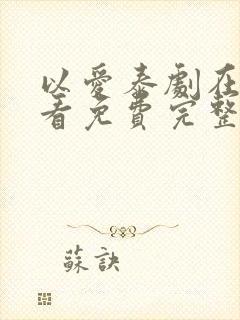 以愛泰劇在
看免費完整
蘇訣